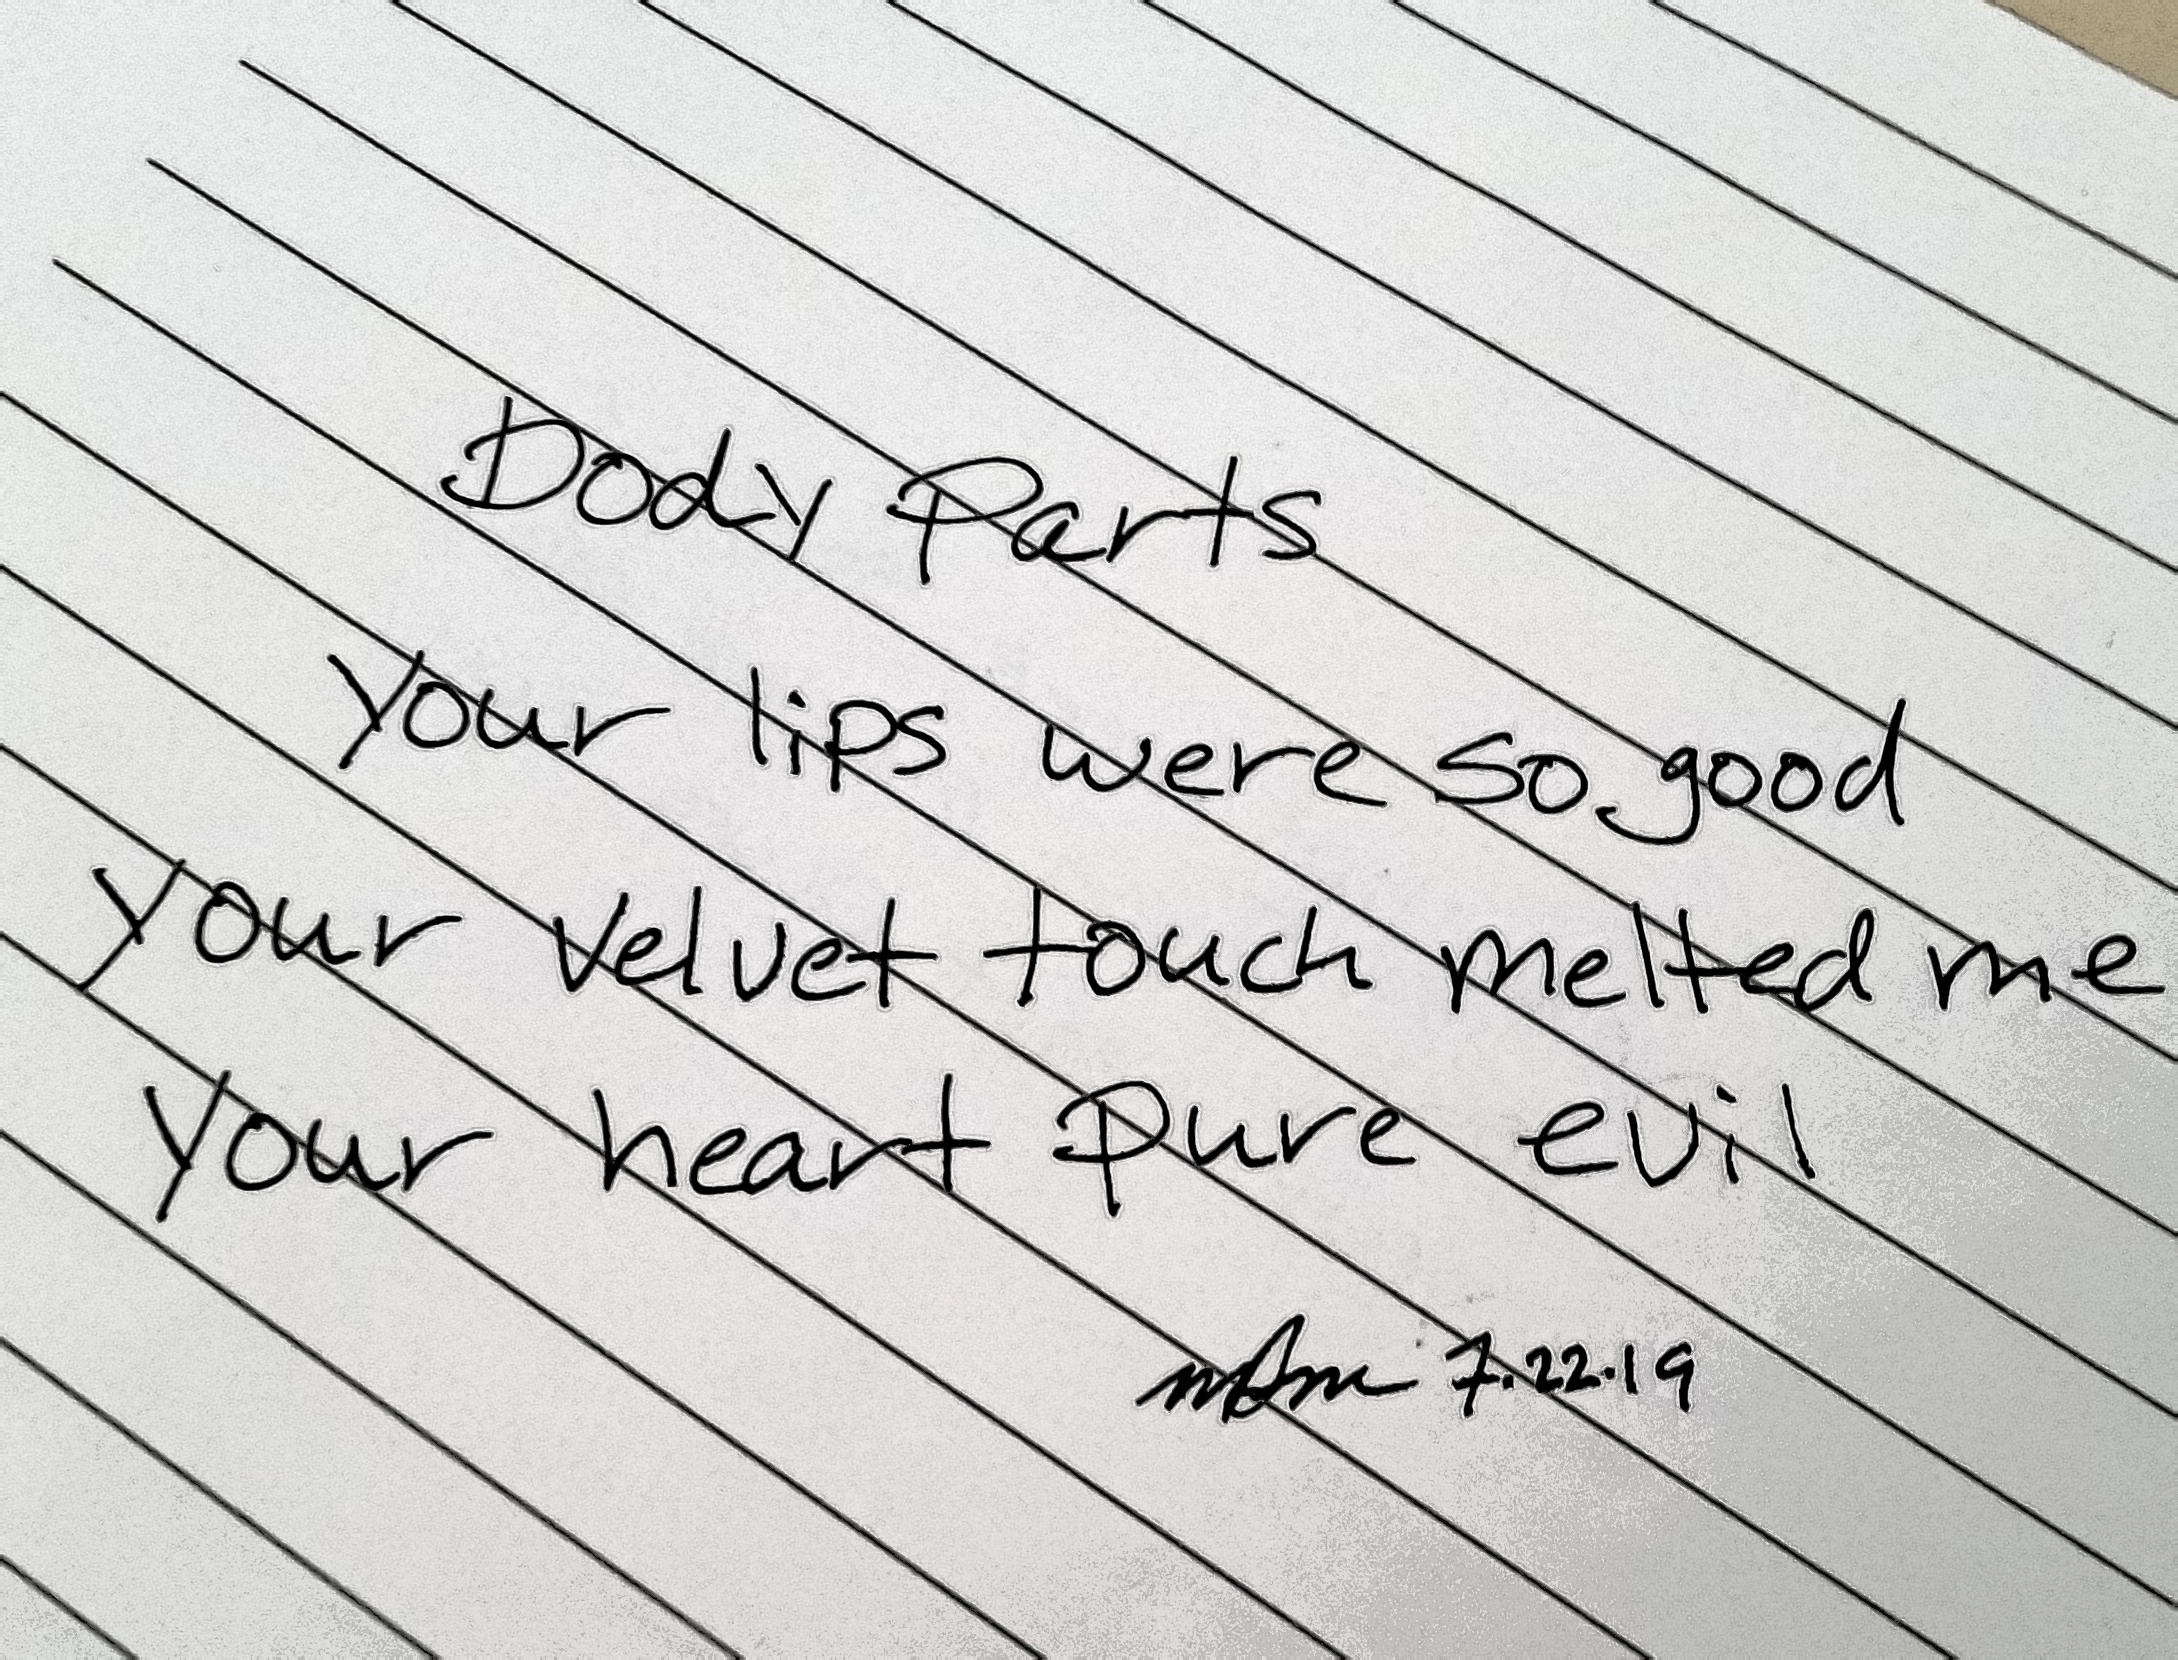 Body Parts
your lips were so good
your velvet touch melted me
your heart pure evil
7.22.19